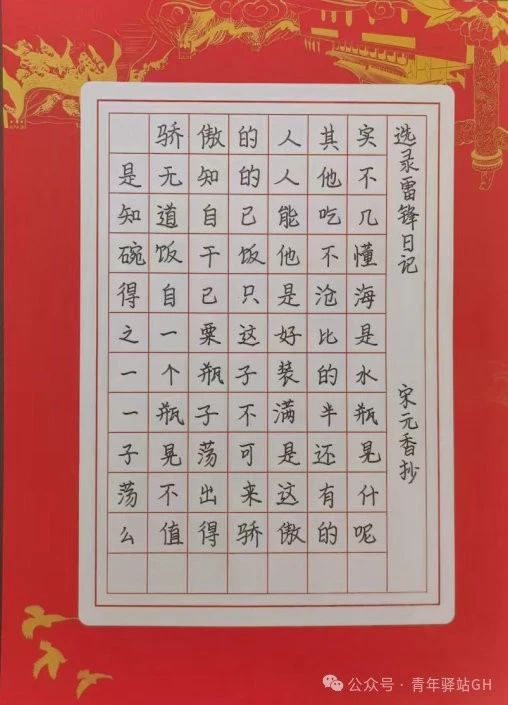 骄傲的人其实
是无知的人他不
知道自己能吃几
碗饭干饭他不懂
得自己只是沧海
之一粟这好比是
一个瓶子装的水
一瓶子不满半瓶
子晃荡可是还晃
荡不出来这有什
么值得骄傲的呢
选录雷锋日记
宋元香抄
公众号·青年驿站GH